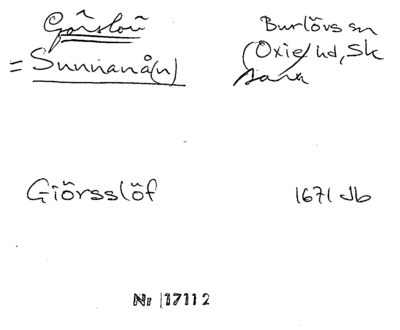 Görslöv
Burlövs sn
= Sunnanå(n)
Oxie hd, Sk
Giörsslöf
1671 Jb
Nr 17112